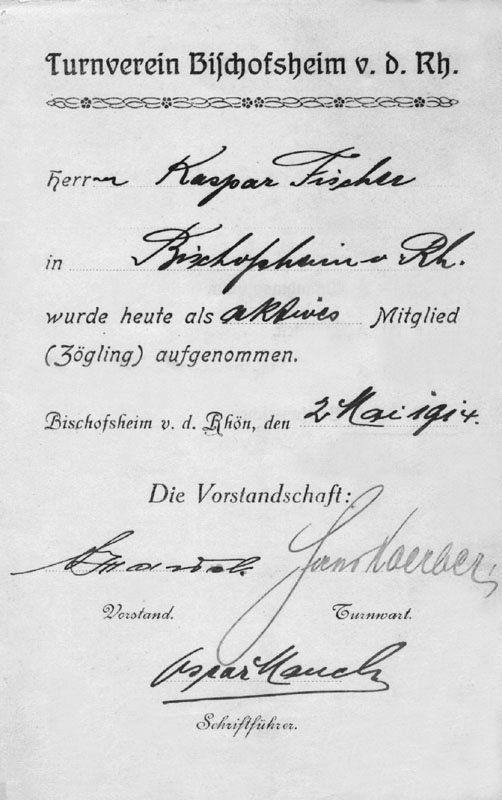 Turnverein Bischofsheim v. d. Rh.
Herrn Kaspar Fischer
in Bischofsheim v. Rh.
wurde heute als aktives Mitglied
(Zögling) aufgenommen.
Bischofsheim v. d. Rhön, den 2 Mai 1914.
Die Vorstandschaft:
Hans Koerber
Vorstand. Turnwart.
Oskar Manch
Schriftführer.